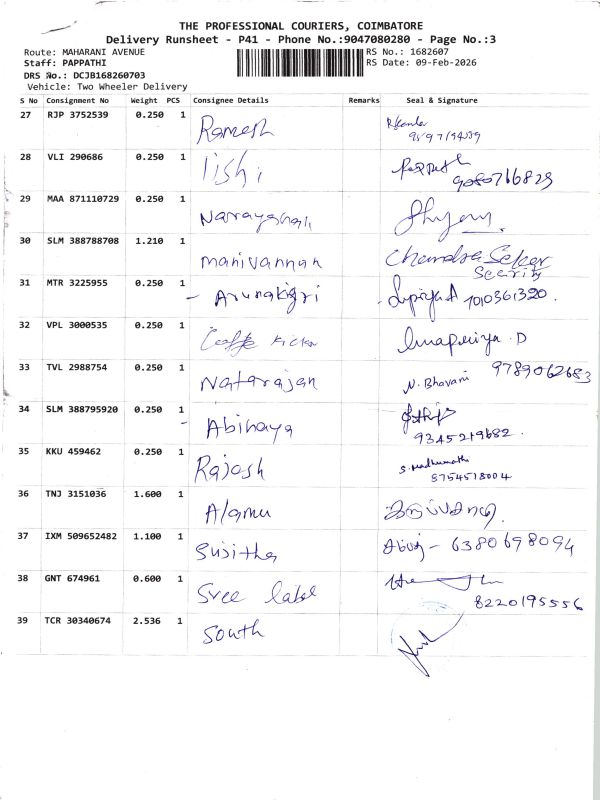 THE PROFESSIONAL COURIERS, COIMBATORE
Delivery Runsheet - P41 - Phone No.:9047080280 - Page No.:3
Route: MAHARANI AVENUE RS No.: 1682607
Staff: PAPPATHI RS Date: 09-Feb-2026
DRS No.: DCJB168260703
Vehicle: Two Wheeler Delivery
S No Consignment No Weight PCS Consignee Details Remarks Seal & Signature
27 RJP 3752539 0.250 1 Ramesh
28 VLI 290686 0.250 1 Iishi 9080716829
29 MAA 871110729 0.250 1 Narayanan
30 SLM 388788708 1.210 1 Manivannan Chandra Seker
31 MTR 3225955 0.250 1 Arunakigri 1010361320
32 VPL 3000535 0.250 1 Coffe Kicker
33 TVL 2988754 0.250 1 Natarajan N. Bhavani 9789062683
34 SLM 388795920 0.250 1 Abinaya
9345219682
35 KKU 459462 0.250 1 Rajosh S. Madhumathi
8754518004
36 TNJ 3151036 1.600 1 Alamu
37 IXM 509652482 1.100 1 Sujitha 6380698094
38 GNT 674961 0.600 1 Sree label
8220195556
39 TCR 30340674 2.536 1 South